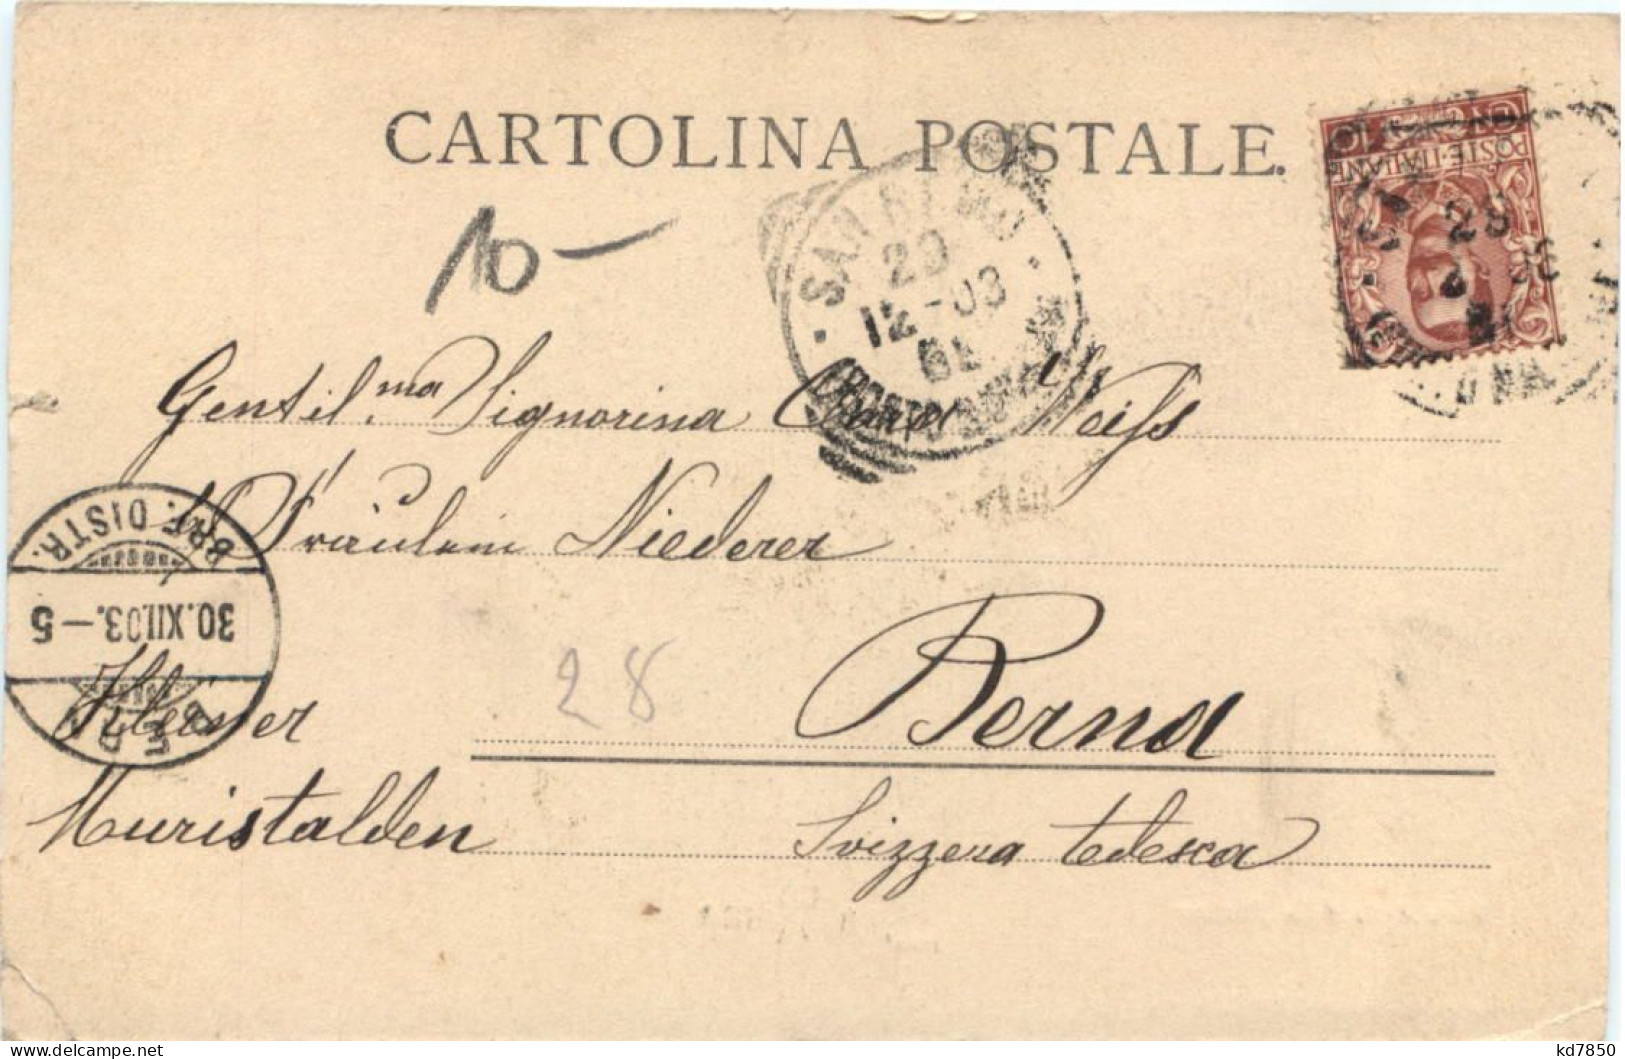 CARTOLINA POSTALE.
POSTE·ITALIANE
10—
SAN REMO
29
12-03
Gentil.ma Signorina Clara Weiss
Fräulein Niederer
BRF. DISTR.
30.XII.03.–5
BERN
28
Berna
Muristalden
Svizzera tedesca
kd7850